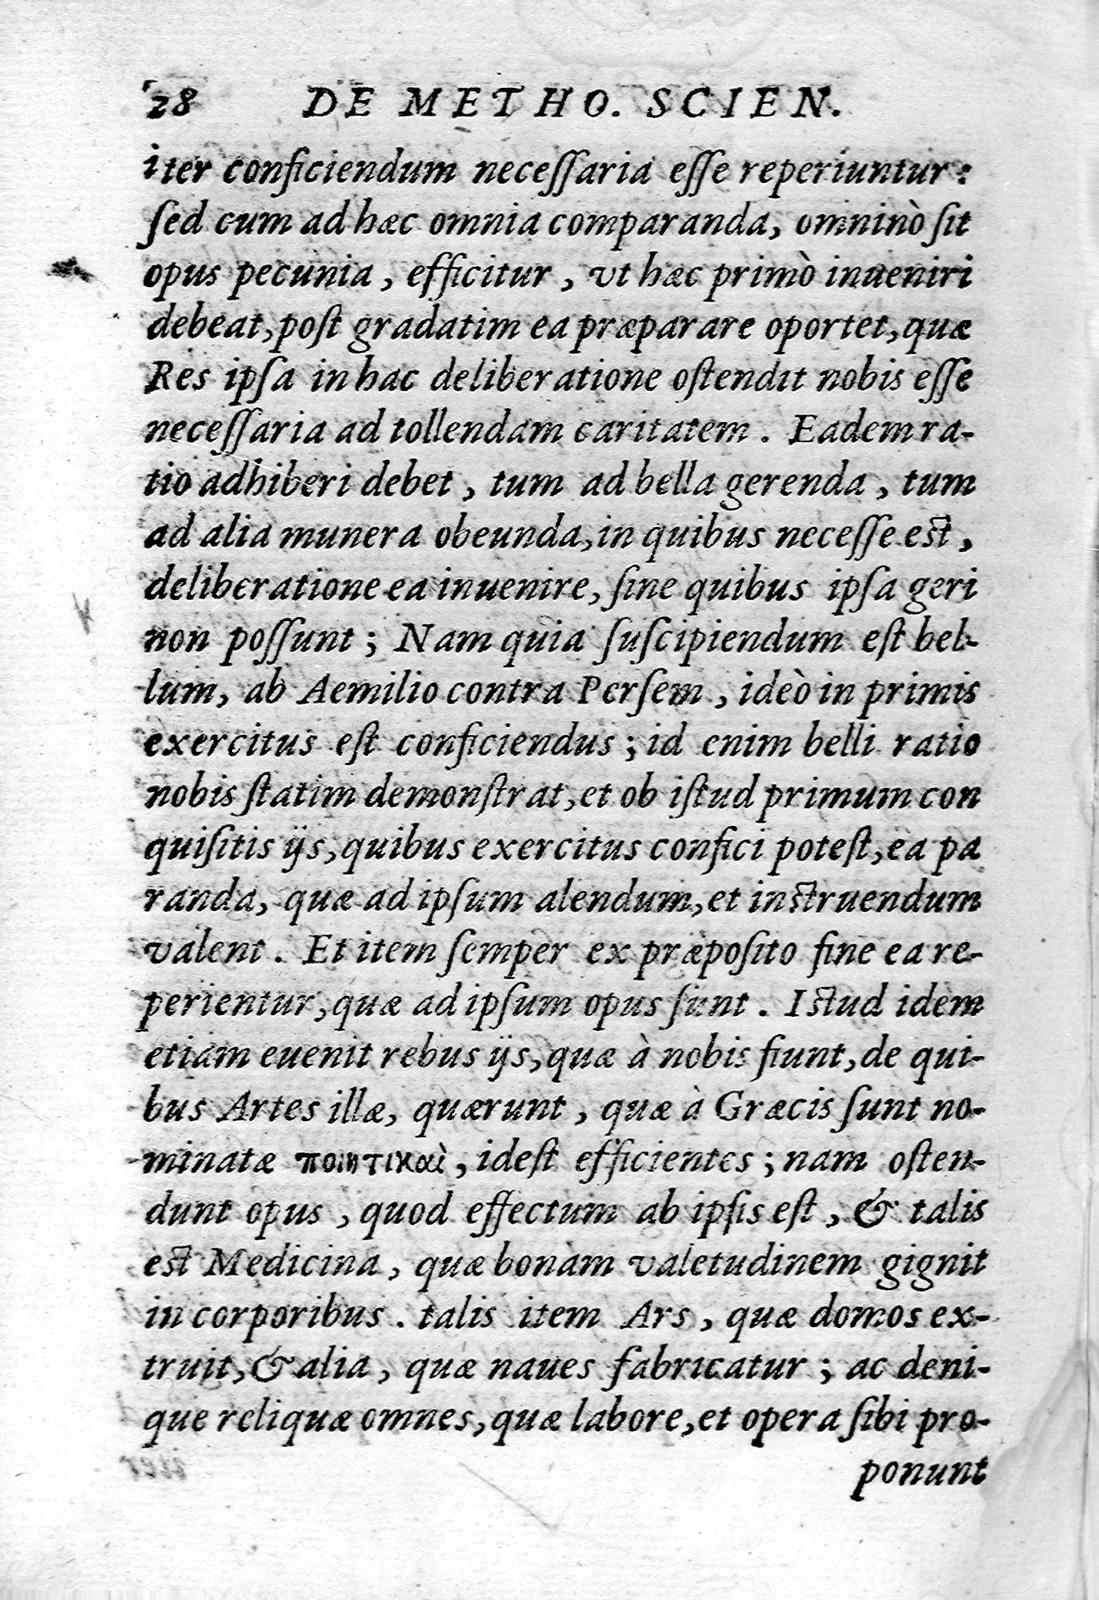 28 DE METHO. SCIEN.
iter conficiendum neceſſaria eſſe reperiuntur:
ſed cum ad hæc omnia comparanda, omninò ſit
opus pecunia, efficitur, vt hæc primò inueniri
debeat, poſt gradatim ea præparare oportet, quæ
Res ipſa in hac deliberatione oſtendit nobis eſſe
neceſſaria ad tollendam caritatem. Eadem ra-
tio adhiberi debet, tum ad bella gerenda, tum
ad alia munera obeunda, in quibus neceſſe eſt,
deliberatione ea inuenire, ſine quibus ipſa geri
non poſſunt; Nam quia ſuſcipiendum eſt bel-
lum, ab Aemilio contra Perſem, ideò in primis
exercitus eſt conficiendus; id enim belli ratio
nobis ſtatim demonſtrat, et ob iſtud primum con
quiſitis ijs, quibus exercitus confici poteſt, ea pa
randa, quæ ad ipſum alendum, et inſtruendum
valent. Et item ſemper ex præpoſito fine ea re-
perientur, quæ ad ipſum opus ſunt. Iſtud idem
etiam euenit rebus ijs, quæ à nobis fiunt, de qui-
bus Artes illæ, quærunt, quæ à Græcis ſunt no-
minatæ ποιητικαὶ, ideſt efficientes; nam oſten-
dunt opus, quod effectum ab ipſis eſt, & talis
eſt Medicina, quæ bonam valetudinem gignit
in corporibus. talis item Ars, quæ domos ex-
truit, & alia, quæ naues fabricatur; ac deni-
que reliquæ omnes, quæ labore, et opera ſibi pro-
ponunt